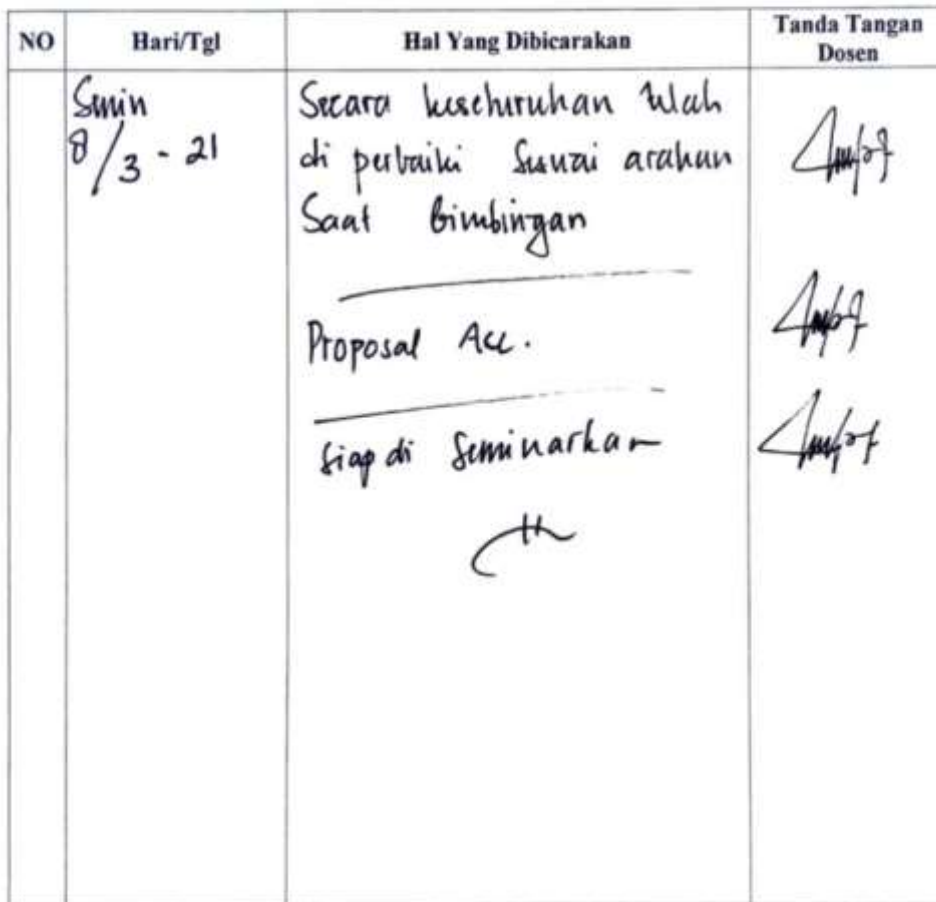 NO Hari/Tgl Hal Yang Dibicarakan Tanda Tangan
Dosen
Senin
8/3 - 21
Secara keseluruhan telah
di perbaiki sesuai arahan
Saat bimbingan
Proposal Acc.
Siap di Seminarkan